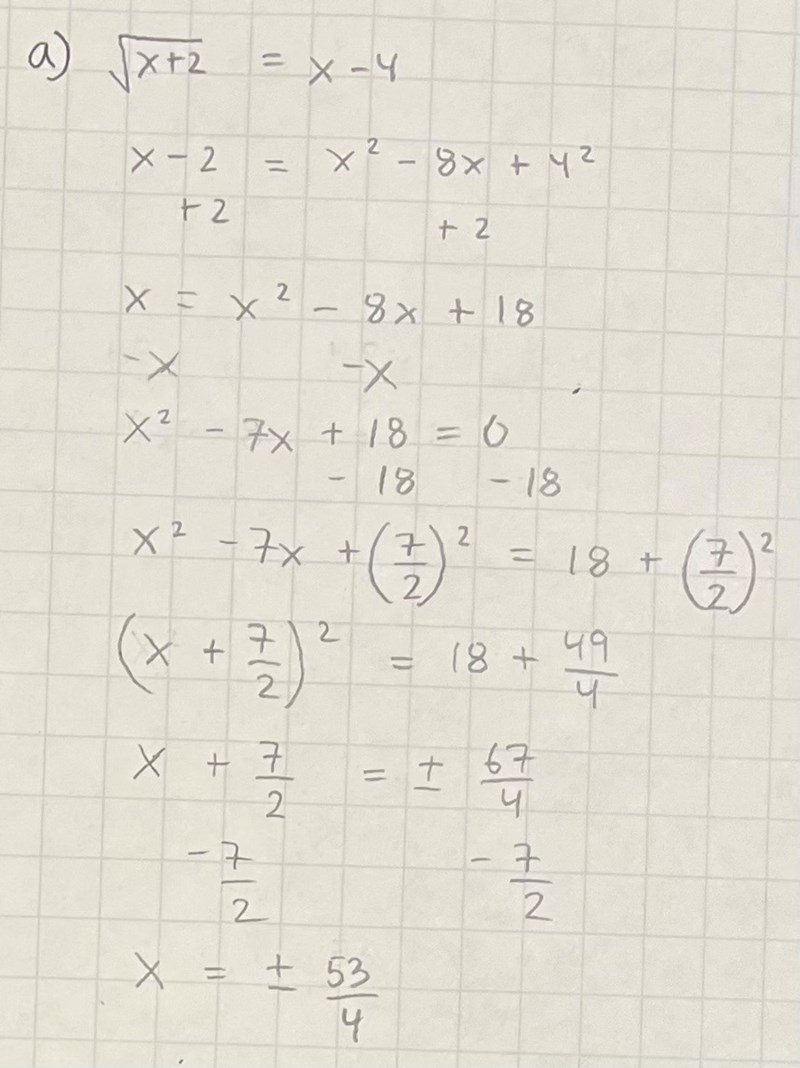 a) √(x+2) = x - 4
x - 2 = x² - 8x + 4²
+2 +2
x = x² - 8x + 18
-x -x
x² - 7x + 18 = 0
- 18 - 18
x² - 7x + (7/2)² = 18 + (7/2)²
(x + 7/2)² = 18 + 49/4
x + 7/2 = ± 67/4
- 7/2 - 7/2
x = ± 53/4